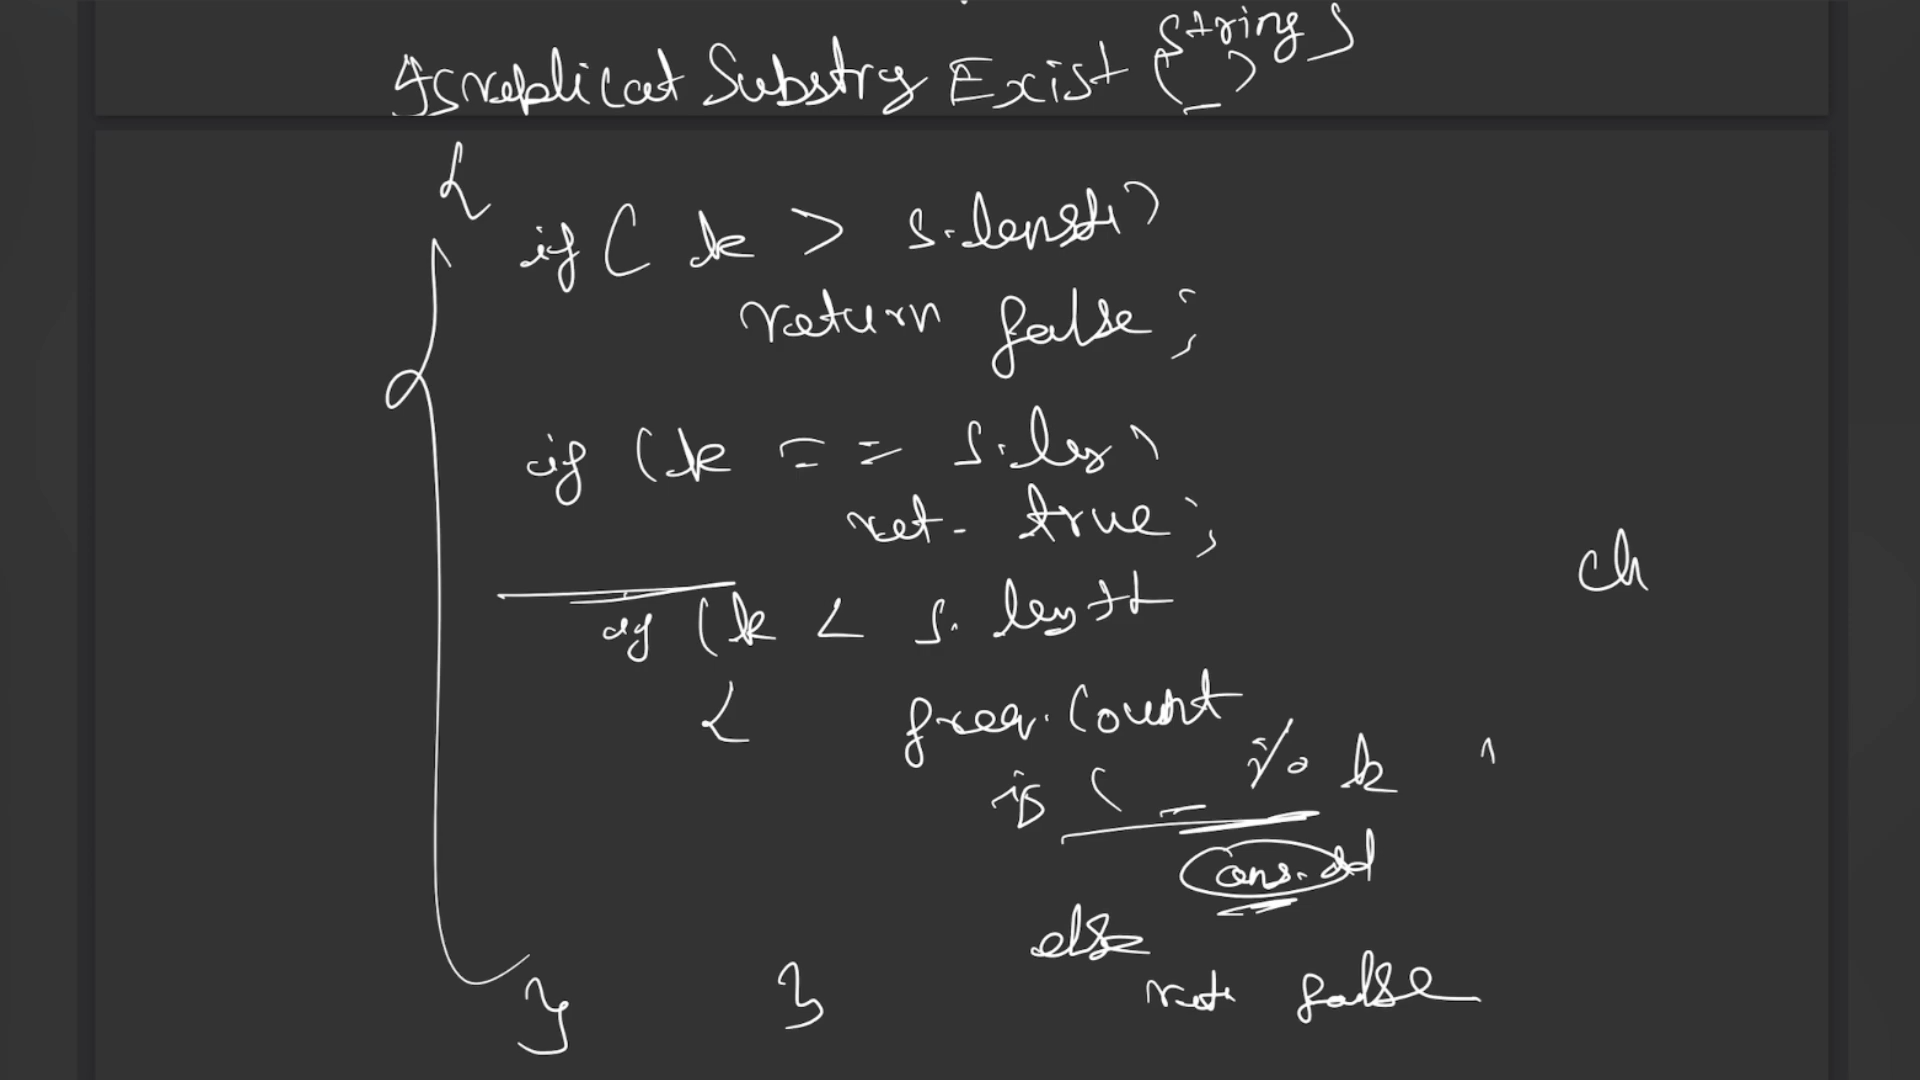 Isreplicat Substrg Exist (_) String s
{
if ( k > s.length)
return false;
if (k == s.leg)
ret. true;
if (k < s. length
{ freq. Count
if ( _ % k )
ans. ad
else
ret. false
}
}
ch